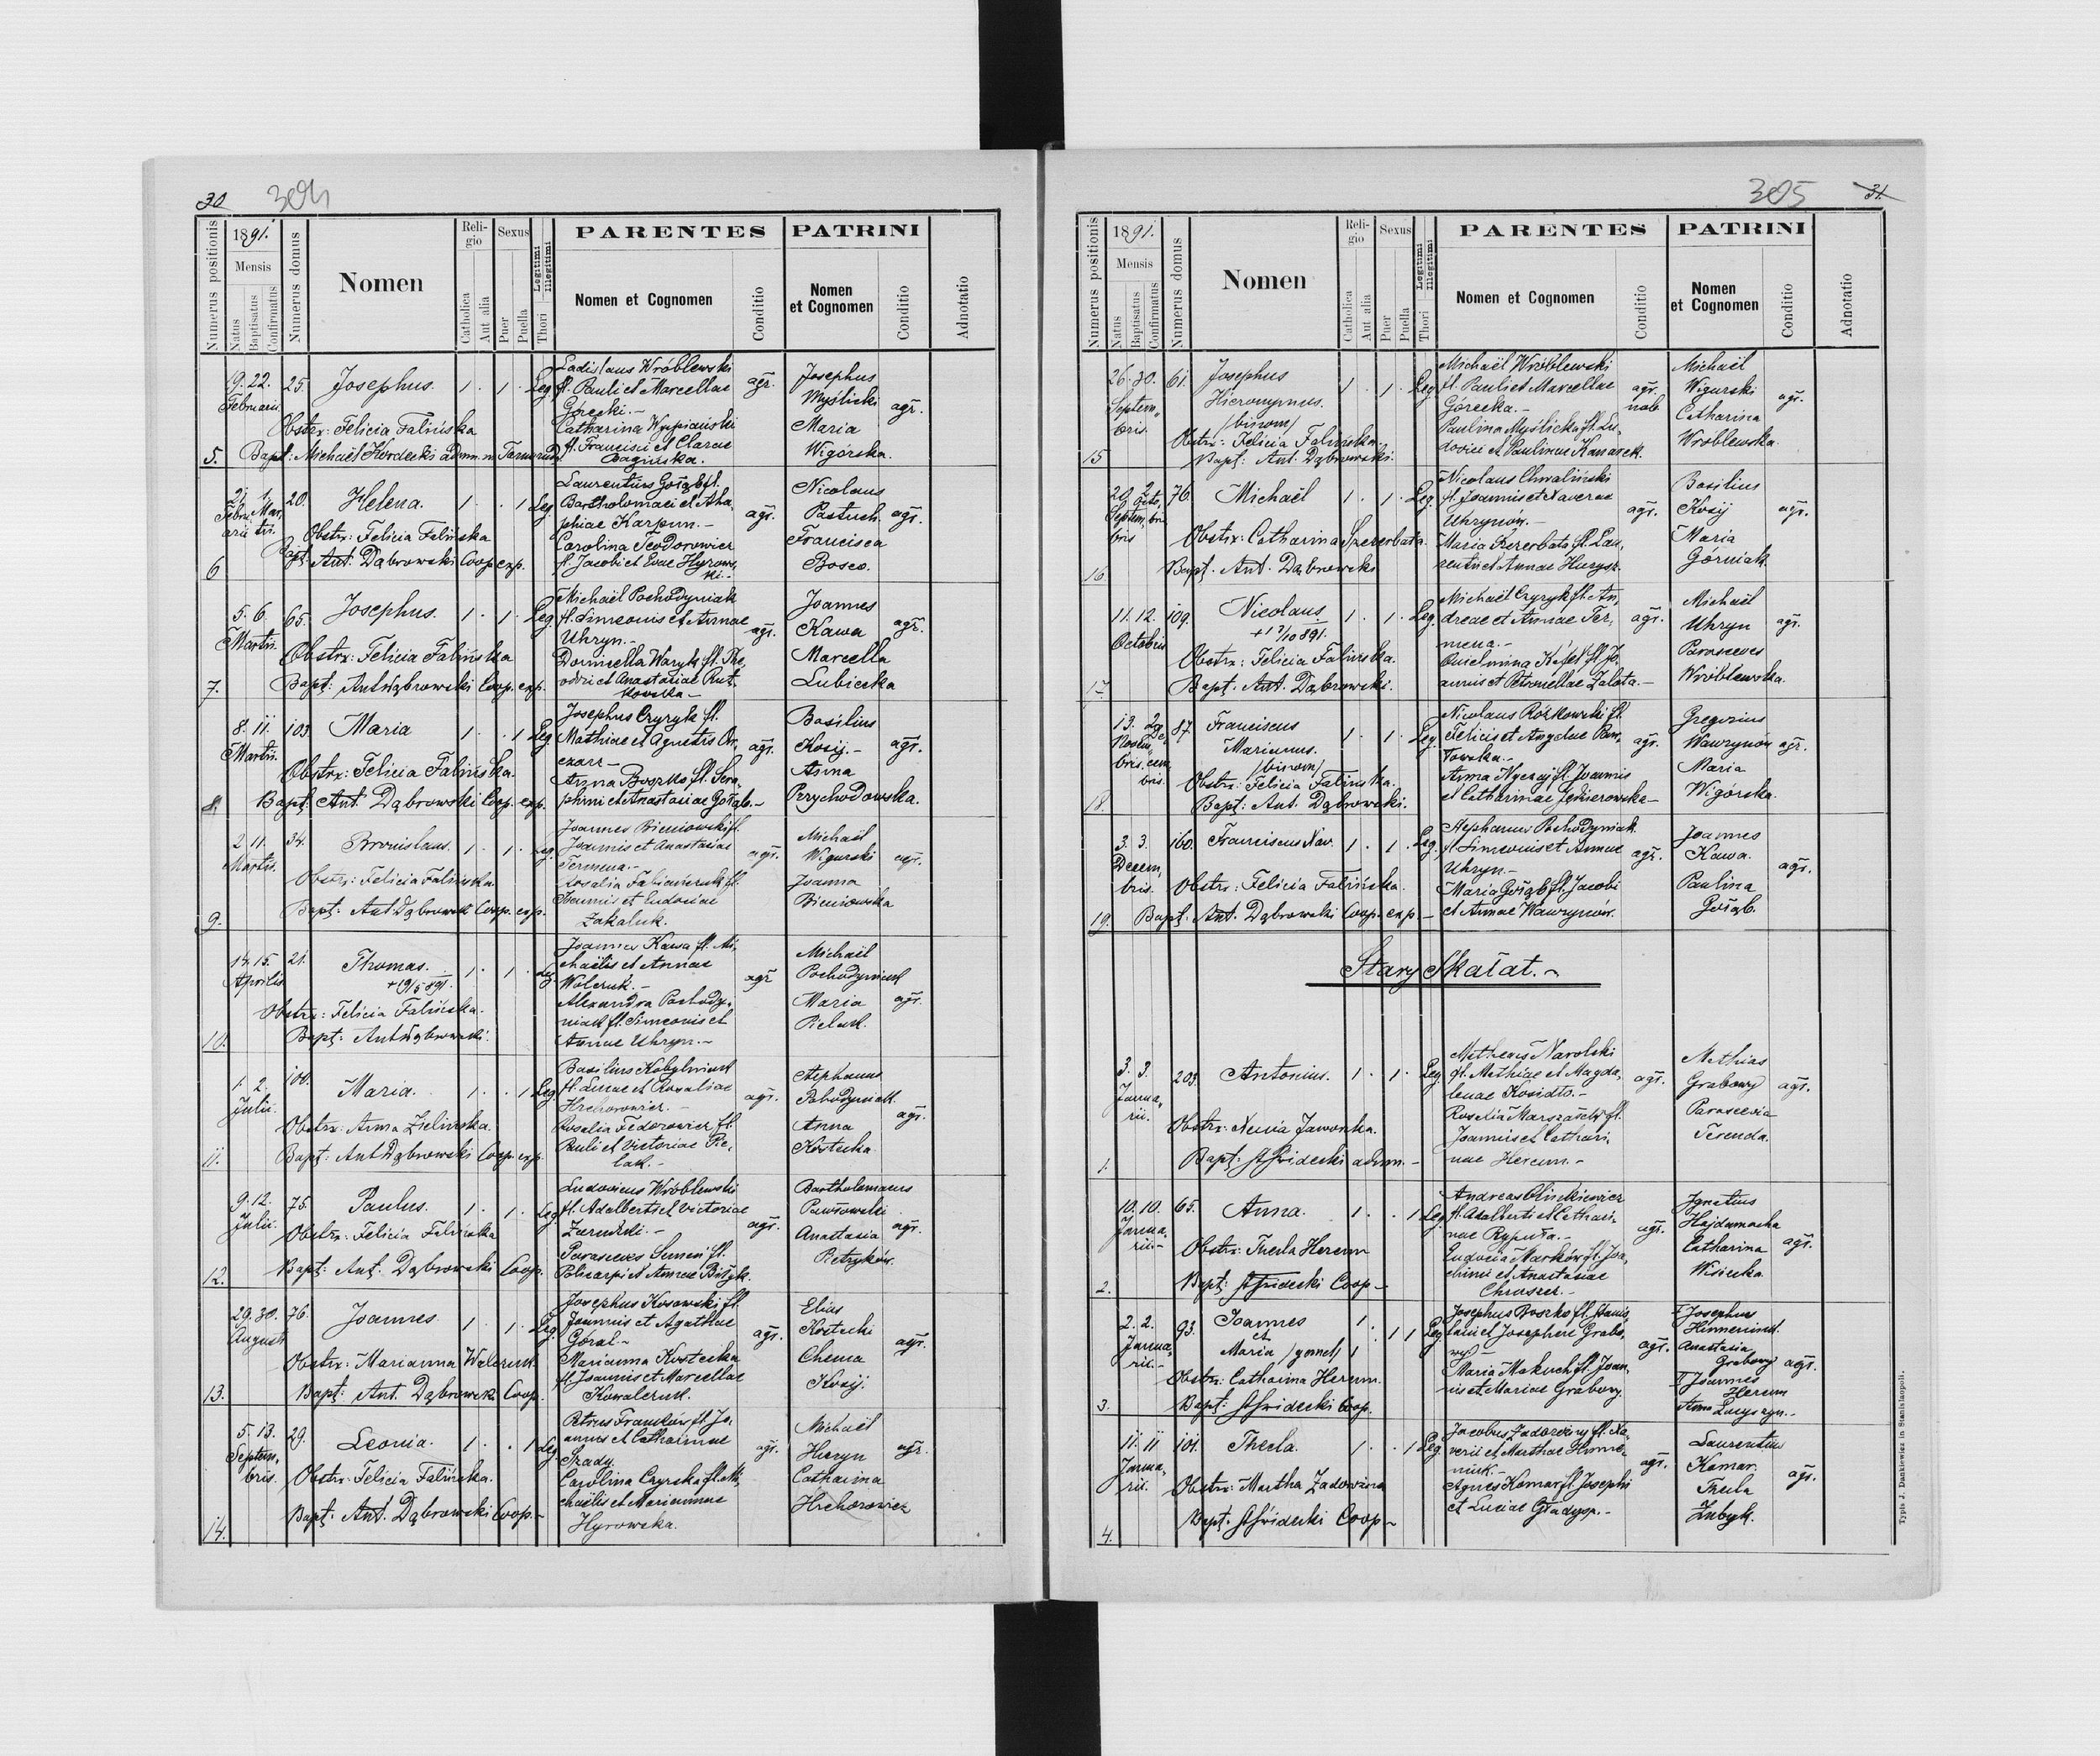 30
304
1891.
Numerus positionis
Mensis
Natus
Baptisatus
Confirmatus
Numerus domus
Nomen
Religio
Catholica
Aut alia
Sexus
Puer
Puella
Thori
Legitimi
Illegitimi
PARENTES
Nomen et Cognomen
Conditio
PATRINI
Nomen
et Cognomen
Conditio
Adnotatio
19. 22. 25. Josephus. 1. 1. Leg.
Februarii
Obstrx: Felicia Falińska
5. Bapt: Michaël
Ladislaus Wróblewski
fl. Pauli et Marcellae
Górecki.-
Catharina Wyspiański
fl. Francisci et Clarae
Bagińska.
agr.
Josephus
Myślicki
Maria
Wigórska.
agr.
21. 1. 20. Helena. 1. 1 Leg
Februarii Martii.
Obstrx: Felicia Falińska
6 Bapt. Ant. Dąbrowski Coop. exp.
Laurentius Gołąb fl.
Bartholomaei et Agaphiae
Karpun.-
Carolina Teodorowicz
fl. Jacobi et Evae Hyrowski.-
agr.
Nicolaus
Pastuch.
Francisca
Bosco.
agr.
5. 6. 65. Josephus. 1. 1. Leg.
Martii.
Obstrx: Felicia Falińska
7. Bapt: Ant. Dąbrowski Coop. exp.
Michaël Pochodyniak
fl. Simeonis et Annae
Uhryn.-
fl. Theodori et Anastasiae
agr.
Joannes
Kawa
Marcella
Lubiecka
agr.
8. 11. 103. Maria 1. 1 Leg
Martii.
Obstrx: Felicia Falińska.
8. Bapt: Ant. Dąbrowski Coop. exp.
Josephus Czyryk fl.
Mathiae et Agnetis
Anna Boszko fl. Seraphini
et Anastasiae Gołąb.-
agr.
Basilius
Kosij.-
Anna
Przychodowska.
agr.
2 11. 34. Bronislaus. 1. 1. Leg.
Martii.
Obstrx: Felicia Falińska
9. Bapt: Ant. Dąbrowski Coop. exp.
Joannes Bieniowski fl.
Joannis et Anastasiae
Termena.-
Rosalia
Joannis et Eudociae
Zakaluk.
agr.
Michaël
Wigurski
Joanna
Bieniowska
agr.
14. 15. 21. Thomas. 1. 1. Leg
Aprilis +19/5 891.
Obstrx: Felicia Falińska.
10. Bapt: Ant. Dąbrowski.
Joannes Kawa fl. Michaëlis
et Annae
Alexandra Pochodyniak
fl. Simeonis et
Annae Uhryn.-
agr
Michaël
Pochodyniak
Maria
Pielak.
agr.
1. 2. 100. Maria. 1. 1 Leg.
Julii.
Obstrx: Anna Zielinska.
11. Bapt: Ant Dąbrowski Coop. exp.
Basilius Kobylniak
fl. Lucae et Rosaliae
Hrehorowicz.-
Rosalia Fedorowicz fl.
Pauli et Victoriae Pielak.-
agr.
Stephanus
Pohodyniak
Anna
Kostecka
agr.
9. 12. 75. Paulus. 1. 1. Leg
Julii.
Obstrx: Felicia Falińska
12. Bapt: Ant. Dąbrowski Coop.
Ludovicus Wróblewski
fl. Adalberti et Victoriae
Parasceves fl.
Policarpi et Annae
agr.
Bartholomaeus
Pawłowski
Anastasia
Pietryków.
agr.
29. 30. 76. Joannes 1. 1. Leg.
Augusti
Obstrx: Marianna Waleruk.
13. Bapt: Ant. Dąbrowski Coop.
Josephus Kosowski fl.
Joannis et Agathae
Góral-
Marianna Kostecka
fl. Joannis et Marcellae
Kowaleruk.
agr.
Elias
Kostecki
Chema
Kosij.
agr.
5. 13. 29. Leonia. 1. 1 Leg.
Septembris.
Obstrx: Felicia Falińska.
14. Bapt: Ant. Dąbrowski Coop.-
Petrus Franków fl. Joannis
et Catharinae
Szady.
Carolina Czyrska fl. Michaëlis
et Mariannae
Hyrowska.
agr.
Michaël
Huryn
Catharina
Hrehorowicz
agr.
305
31.
1891.
Numerus positionis
Mensis
Natus
Baptisatus
Confirmatus
Numerus domus
Nomen
Religio
Catholica
Aut alia
Sexus
Puer
Puella
Thori
Legitimi
Illegitimi
PARENTES
Nomen et Cognomen
Conditio
PATRINI
Nomen
et Cognomen
Conditio
Adnotatio
26. 30. 61. Josephus 1. 1. Leg.
Septembris. Hieronymus.
/binom/
Obstrx: Felicia Falińska.
15 Bapt: Ant. Dąbrowski.
Michaël Wróblewski
fl. Pauli et Marcellae
Górecka.-
Paulina Myślicka fl. Ludovici
et Paulinae Kanarek.
agr.
nob.
Michaël
Wigurski
Catharina
Wróblewska.
agr.
20. 2. 76. Michaël 1. 1. Leg.
Septembris Octobris
Obstrx: Catharina Szczerbata.
16. Bapt. Ant. Dąbrowski
Nicolaus Chwaliński
fl. Joannis et Xaverae
Uhrynów.-
Maria Szczerbata fl. Laurentii
et Annae Hurysz.
agr.
Basilius
Kosij
Maria
Górniak.
agr.
11. 12. 109. Nicolaus 1. 1. Leg.
Octobris +17/10 891.
Obstrx: Felicia Falińska.
17. Bapt. Ant. Dąbrowski.
Michaël Czyryk fl. Andreae
et Annae Termena.-
fl. Joannis
et Petronellae Zalota.-
agr.
Michaël
Uhryn
Parasceves
Wróblewska.
agr.
13. 29 87 Franciscus 1. 1. Leg
Novembris. Marianus.
/binom/
Obstrx: Felicia Falińska.
18. Bapt: Ant. Dąbrowski.
Nicolaus Rózkowski fl.
Felicis et Angelae Pawłowska.-
Anna fl. Joannis
et Catharinae
agr.
Gregorius
Wawrynów
Maria
Wigórska.
agr.
3. 3. 160. Franciscus Xav. 1. 1. Leg.
Decembris.
Obstrx: Felicia Falińska.
19. Bapt: Ant. Dąbrowski Coop. exp.-
Stephanus Pochodyniak
fl. Simeonis et Annae
Uhryn.-
Maria Gołąb fl. Jacobi
et Annae Wawrynów.
agr.
Joannes
Kawa.
Paulina
Gołąb.
agr.
Stary Skałat.-
3. 3. 203. Antonius. 1. 1. Leg.
Januarii.
Obstrx: Jaworska.
1. Bapt: adm.-
Matheus Narolski
fl. Mathiae et Magdalenae
Rosalia fl.
Joannis et Catharinae
Hercun.-
agr.
Mathias
Grabowy
Parascevia
Terenda.
agr.
10. 10. 65. Anna. 1. 1 Leg.
Januarii.-
Obstrx: Thecla Hercun
2. Bapt: Coop-
Andreas Olinkiewicz
fl. Adalberti et Catharinae
Rypuła.-
Ludovica Marków fl. Joachimi
et Anastasiae
Chruszcz.-
agr.
Ignatius
Hajdamacha
Catharina
Wisicka
agr.
2. 2. 93. Joannes 1. 1 1 Leg
Januarii.- et
Maria /gemelli/ 1
Obstrx: Catharina Hercun.
3. Bapt: Coop.
Josephus Boszko fl. Stanislai
et Josephae Grabowy-
Maria Makuch fl. Joannis
et Mariae Grabowy.
agr.
I Josephus
Anastasia
Grabowy
II Joannes
Hercun
Anna
agr.
11. 11 101. Thecla. 1. 1 Leg
Januarii.
Obstrx: Martha Zadorożna
4. Bapt: Coop-
Jacobus Zadorożny fl. Xaverii
et Marthae
Agnes Komar fl. Josephi
et Luciae Gładysz.-
agr.
Laurentius
Komar.
Thecla
Zubyk.
agr.
Typis J. Dankiewicz in Stanislaopoli.